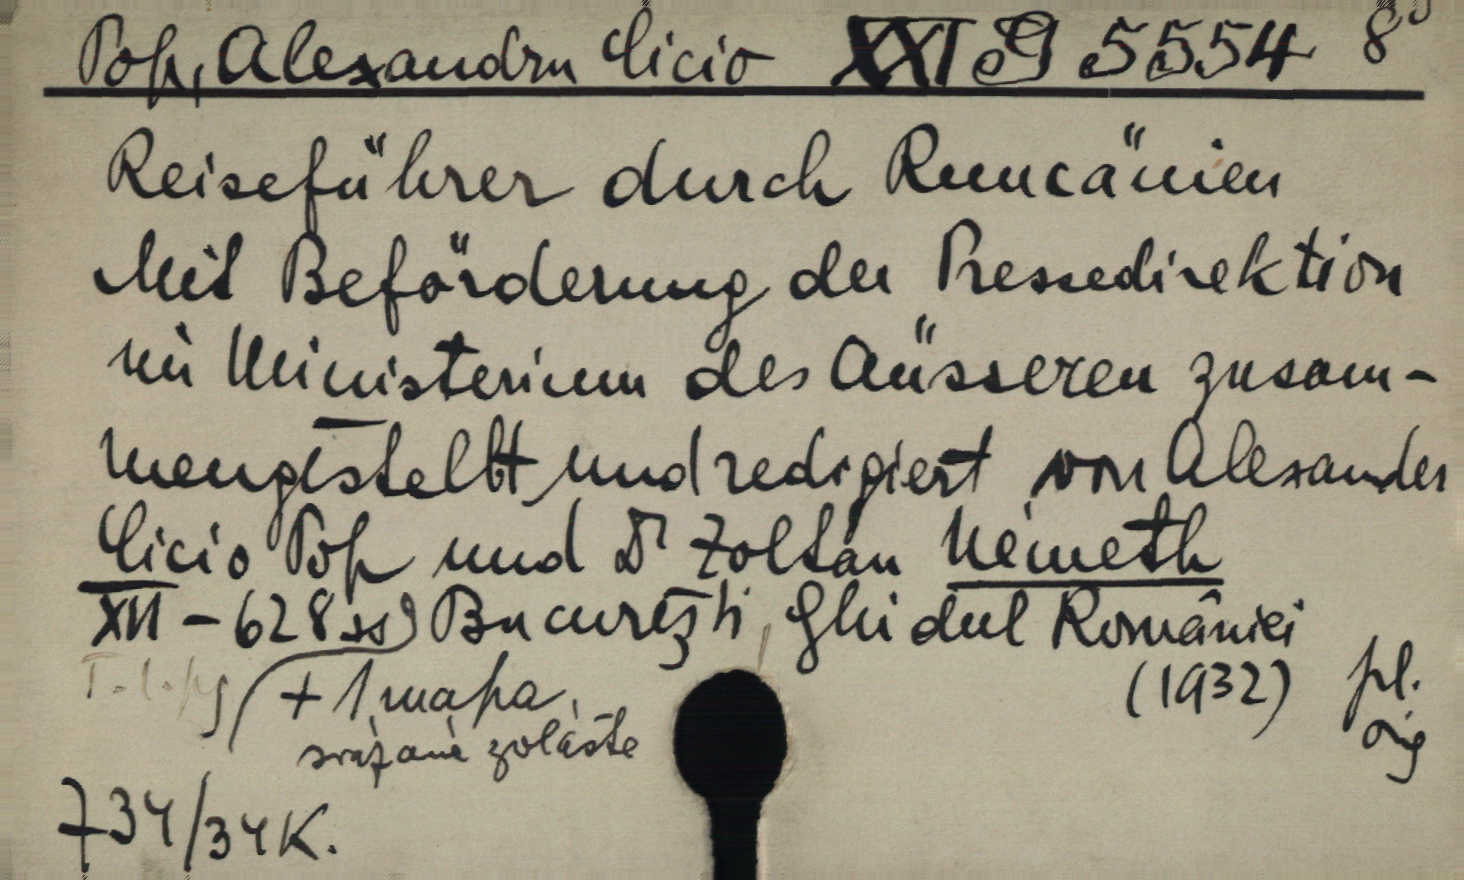 Pop, Alexandru Cicio XXI G 5554 8°
Reiseführer durch Rumäänien
Mit Beförderung der Pressedirektion
im Ministerium des Aüsseren zusam-
mengestellt und redigiert von Alexander
Cicio Pop und Dr Zoltán Németh
XII - 628 ss București, Ghidul României
(1932) pl.
+ 1 mapa orig
svázané zoláště
734/34 K.